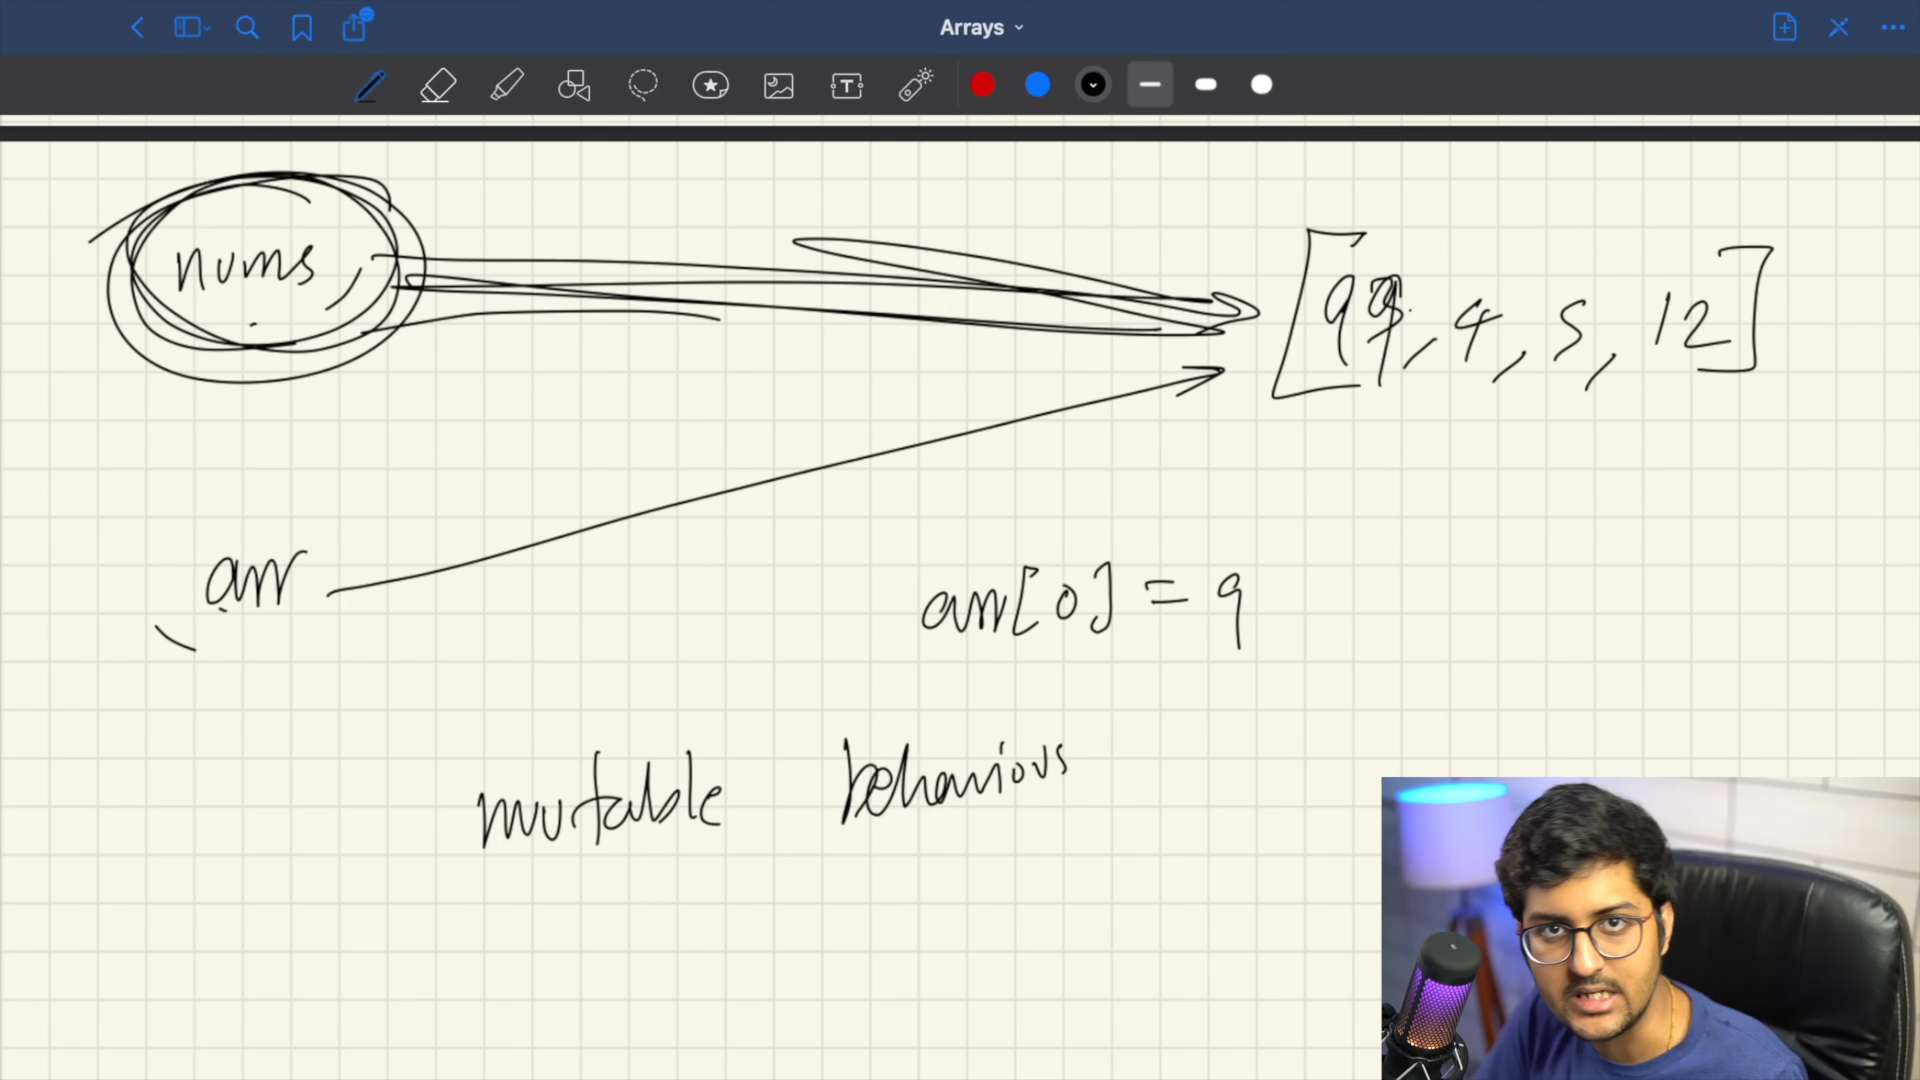 Arrays
nums
[99, 4, 5, 12]
arr
arr[0] = 9
mutable behaviours